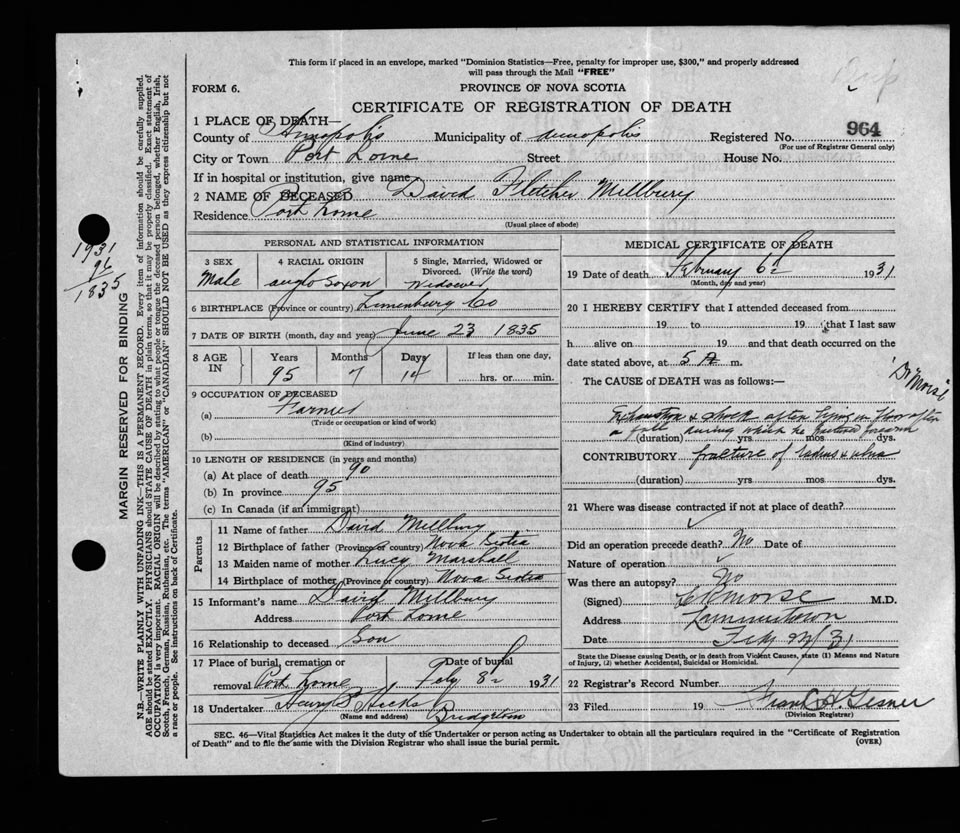 This form if placed in an envelope, marked "Dominion Statistics—Free, penalty for improper use, $300," and properly addressed
will pass through the Mail "FREE"
FORM 6.
PROVINCE OF NOVA SCOTIA
CERTIFICATE OF REGISTRATION OF DEATH
1 PLACE OF DEATH—
County of Annapolis Municipality of Annapolis Registered No. 964
(For use of Registrar General only)
City or Town Port Lorne Street House No.
If in hospital or institution, give name
2 NAME OF DECEASED David Fletcher Millbury
Residence Port Lorne
(Usual place of abode)
PERSONAL AND STATISTICAL INFORMATION
3 SEX 4 RACIAL ORIGIN 5 Single, Married, Widowed or
Divorced. (Write the word)
Male anglo Saxon Widower
6 BIRTHPLACE (Province or country) Lunenburg Co
7 DATE OF BIRTH (month, day and year) June 23 1835
8 AGE IN Years Months Days If less than one day,
95 7 14 hrs. or min.
9 OCCUPATION OF DECEASED
(a) Farmer
(Trade or occupation or kind of work)
(b)
(Kind of industry)
10 LENGTH OF RESIDENCE (in years and months)
(a) At place of death 90
(b) In province 95
(c) In Canada (if an immigrant)
Parents
11 Name of father David Millbury
12 Birthplace of father (Province or country) Nova Scotia
13 Maiden name of mother Lucy Marshall
14 Birthplace of mother (Province or country) Nova Scotia
15 Informant's name David Millbury
Address Port Lorne
16 Relationship to deceased Son
17 Place of burial, cremation or Date of burial
removal Port Lorne Feby 8th 1931
18 Undertaker Harry B Hicks
(Name and address) Bridgetown
MEDICAL CERTIFICATE OF DEATH
19 Date of death February 6th 1931
(Month, day and year)
20 I HEREBY CERTIFY that I attended deceased from
19 to 19 that I last saw
h alive on 19 and that death occurred on the
date stated above, at 5 A m.
The CAUSE of DEATH was as follows:—
Dr Morse
Exhaustion & shock after lying on floor after
a fall during which he fractured forearm
(duration) yrs. mos. dys.
CONTRIBUTORY fracture of radius & ulna
(duration) yrs. mos. dys.
21 Where was disease contracted if not at place of death?
Did an operation precede death? No Date of
Nature of operation
Was there an autopsy? No
(Signed) Morse M.D.
Address Lawrencetown
Date 31
State the Disease causing Death, or in death from Violent Causes, state (1) Means and Nature
of Injury, (2) whether Accidental, Suicidal or Homicidal.
22 Registrar's Record Number
23 Filed 19 Frank H. Gesner
(Division Registrar)
SEC. 46—Vital Statistics Act makes it the duty of the Undertaker or person acting as Undertaker to obtain all the particulars required in the "Certificate of Registration
of Death" and to file the same with the Division Registrar who shall issue the burial permit. (OVER)
MARGIN RESERVED FOR BINDING
N.B.—WRITE PLAINLY WITH UNFADING INK—THIS IS A PERMANENT RECORD. Every item of information should be carefully supplied.
AGE should be stated EXACTLY. PHYSICIANS should STATE CAUSE OF DEATH in plain terms, so that it may be properly classified. Exact statement of
OCCUPATION is very important. RACIAL ORIGIN will be described by stating to what people or tongue the deceased person belonged, whether English, Irish,
Scotch, French, German, Russian, Ruthenian, etc. The terms "AMERICAN" or "CANADIAN" SHOULD NOT BE USED as they express citizenship but not
a race or people. See instructions on back of Certificate.
1931
96
1835